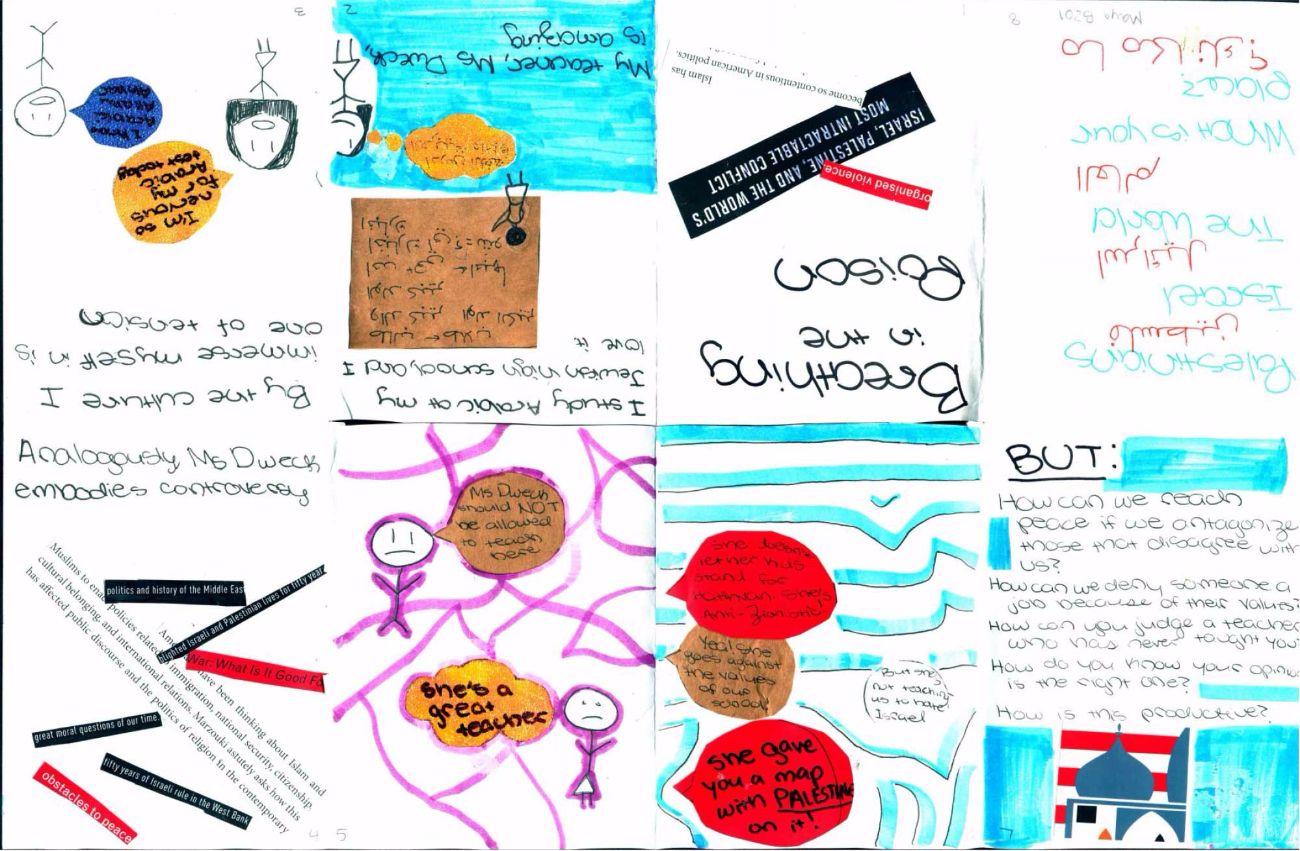 Islam has
become so contentious in American politics.
ISRAEL, PALESTINE, AND THE WORLD'S
MOST INTRACTABLE CONFLICT
organised violence
Breathing
in the
Poison
My teacher, Ms Dweck,
is amazing
I study Arabic at my
Jewish high school, and I
love it
I know
Arabic
I'm so
nervous
for my
Arabic
test today
By the culture I
immerse myself in is
one of tension
Analogously Ms Dweck
embodies controversy
politics and history of the Middle East
blighted Israeli and Palestinian lives for fifty year
War: What Is It Good Fo
great moral questions of our time.
fifty years of Israeli rule in the West Bank
obstacles to peace
Muslims to enact policies related to immigration, national security, citizenship
cultural belonging, and international relations. Marzouki astutely asks how this
has affected public discourse and the politics of religion in the contemporary
have been thinking about Islam and
4
5
Ms Dweck
should NOT
be allowed
to teach
here
she's a
great
teacher
she doesn't
let her kids
stand for
hatikvah. she's
Anti-Zionistic!
Yea! she
goes against
the values
of our
school!
But she's
not teaching
us to hate
Israel
she gave
you a map
with PALESTINE
on it!
BUT:
How can we reach
peace if we antagonize
those that disagree with
us?
How can we deny someone a
job because of their values?
How can you judge a teacher
who has never taught you?
How do you know your opinion
is the right one?
How is this productive?
7
Palestinians
فلسطين
Israel
اسرائيل
The World
العالم
What is your
place?
Maya B201
8
2
3